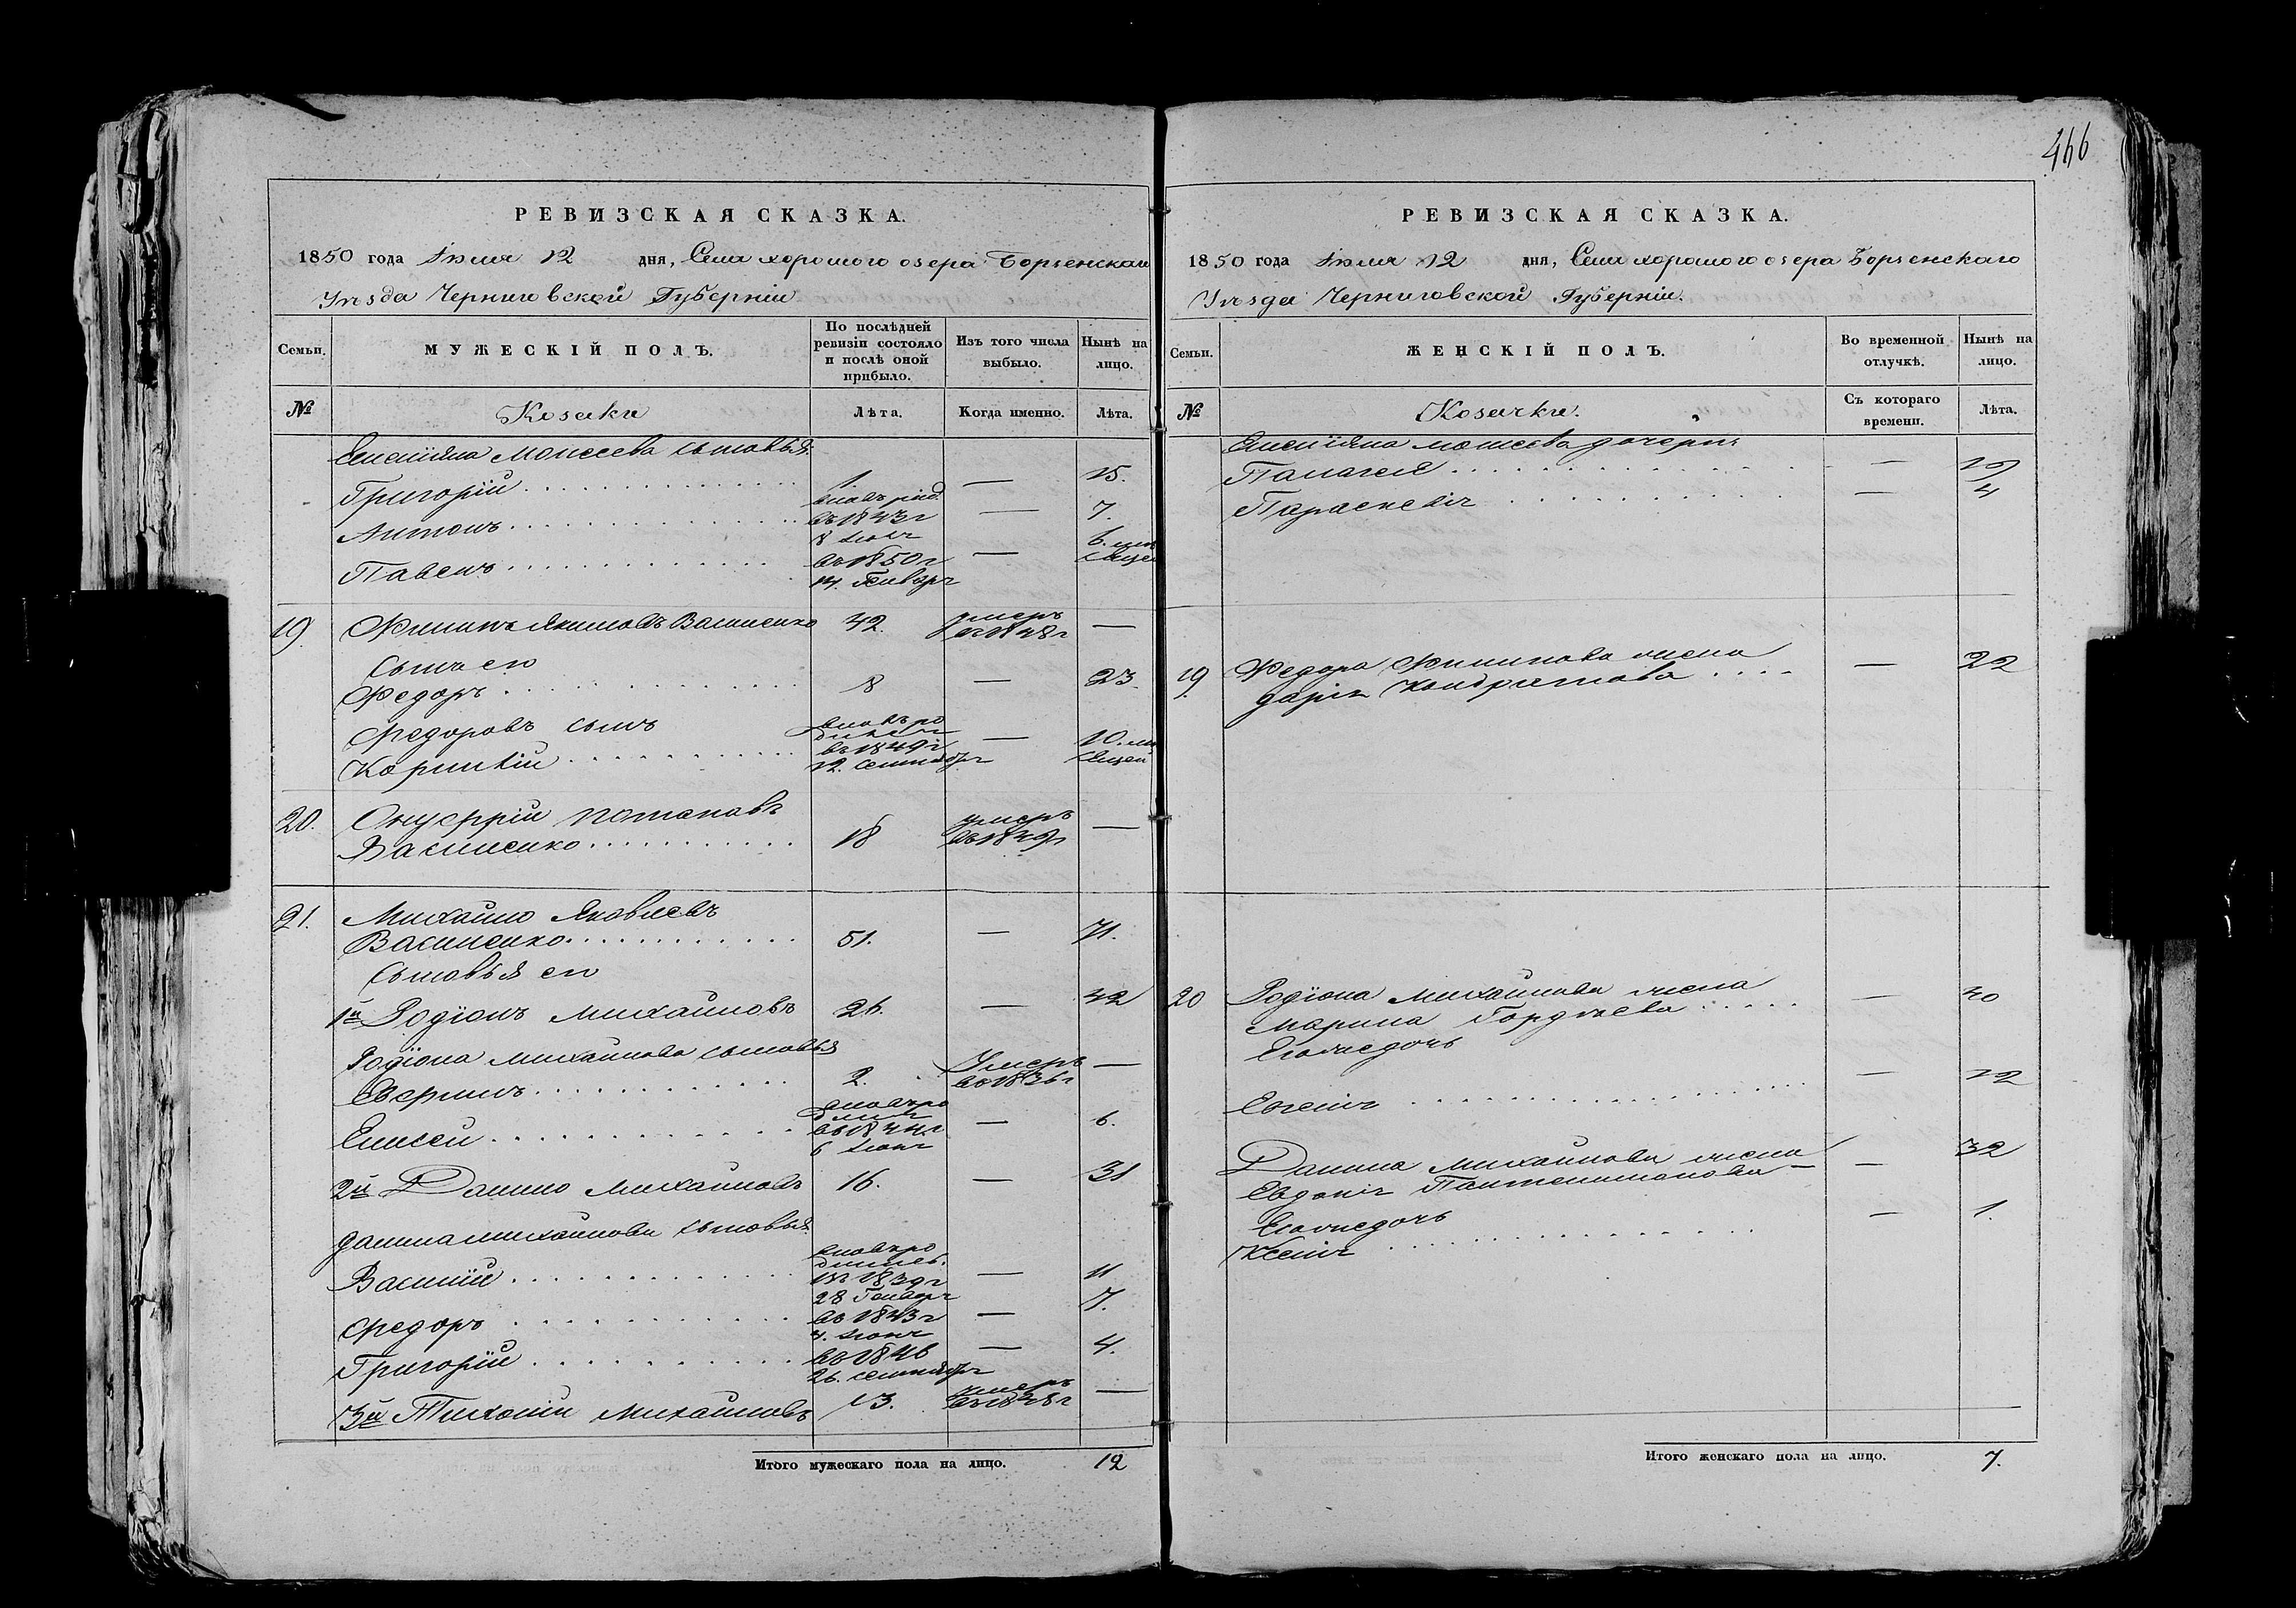 466
РЕВИЗСКАЯ СКАЗКА.
1850 года Іюля 12 дня, Села хорошого озера Борзенскаго
Уѣзда Черниговской Губерніи
Семьи. МУЖЕСКІЙ ПОЛЪ. По послѣдней ревизіи состояло и послѣ оной прибыло. Изъ того числа выбыло. Нынѣ на лицо.
№ Козаки Лѣта. Когда именно. Лѣта.
Моисеева сыновья
Григорій 1. — 15.
вновь рожд
Антонъ въ 1843 г — 7.
8 Іюня
Павелъ въ 1850 г — 6. мѣ
14. Января сяцей
19. Филипъ Якимовъ Василенко 42. умеръ въ 1848 г —
сынъ его
Федоръ 8 — 23.
Федоровъ сынъ вновь ро
дился
Корнилій въ 1849 г — 10. мѣ
12. Сентября сяцей
20. Онуфрій Потаповъ
Василенко 18 умеръ въ 1849 г —
21. Михайло Яковлевъ
Василенко 51. — 71.
сыновья его
1й Родіонъ Михайловъ 26. — 42
Родіона Михайлова сыновья
Северинъ 2. Умеръ во 1836 г —
вновь ро
дился
Елисей въ 1844 г — 6.
6 Іюня
2й Данило Михайловъ 16. — 31
Данила Михайлова сыновья
вновь ро
дились.
Василій въ 1839 г — 11
28 Генваря
Федоръ въ 1843 г — 7.
4. Іюня
Григорій въ 1846 — 4.
26. Сентября
3й Тихонъ Михайловъ 13. умеръ въ 1848 г —
Итого мужескаго пола на лицо. 12
РЕВИЗСКАЯ СКАЗКА.
1850 года Іюля 12 дня, Села хорошого озера Борзенскаго
Уѣзда Черниговской Губерніи.
Семьи. ЖЕНСКІЙ ПОЛЪ. Во временной отлучкѣ. Нынѣ на лицо.
№ Козачки. Съ котораго времени. Лѣта.
Моисеева дочери
Палагея — 19
Параскевія — 4
19. Федора Филипова жена — 22
Дарія Кондратова
20 Родіона Михайлова жена — 40
Марина Гордѣева
Его же дочь
Евгенія — 12
Данила Михайлова жена — 32
Евдокія Пантелимонова
Его же дочь — 1.
Ксенія
Итого женскаго пола на лицо. 7.